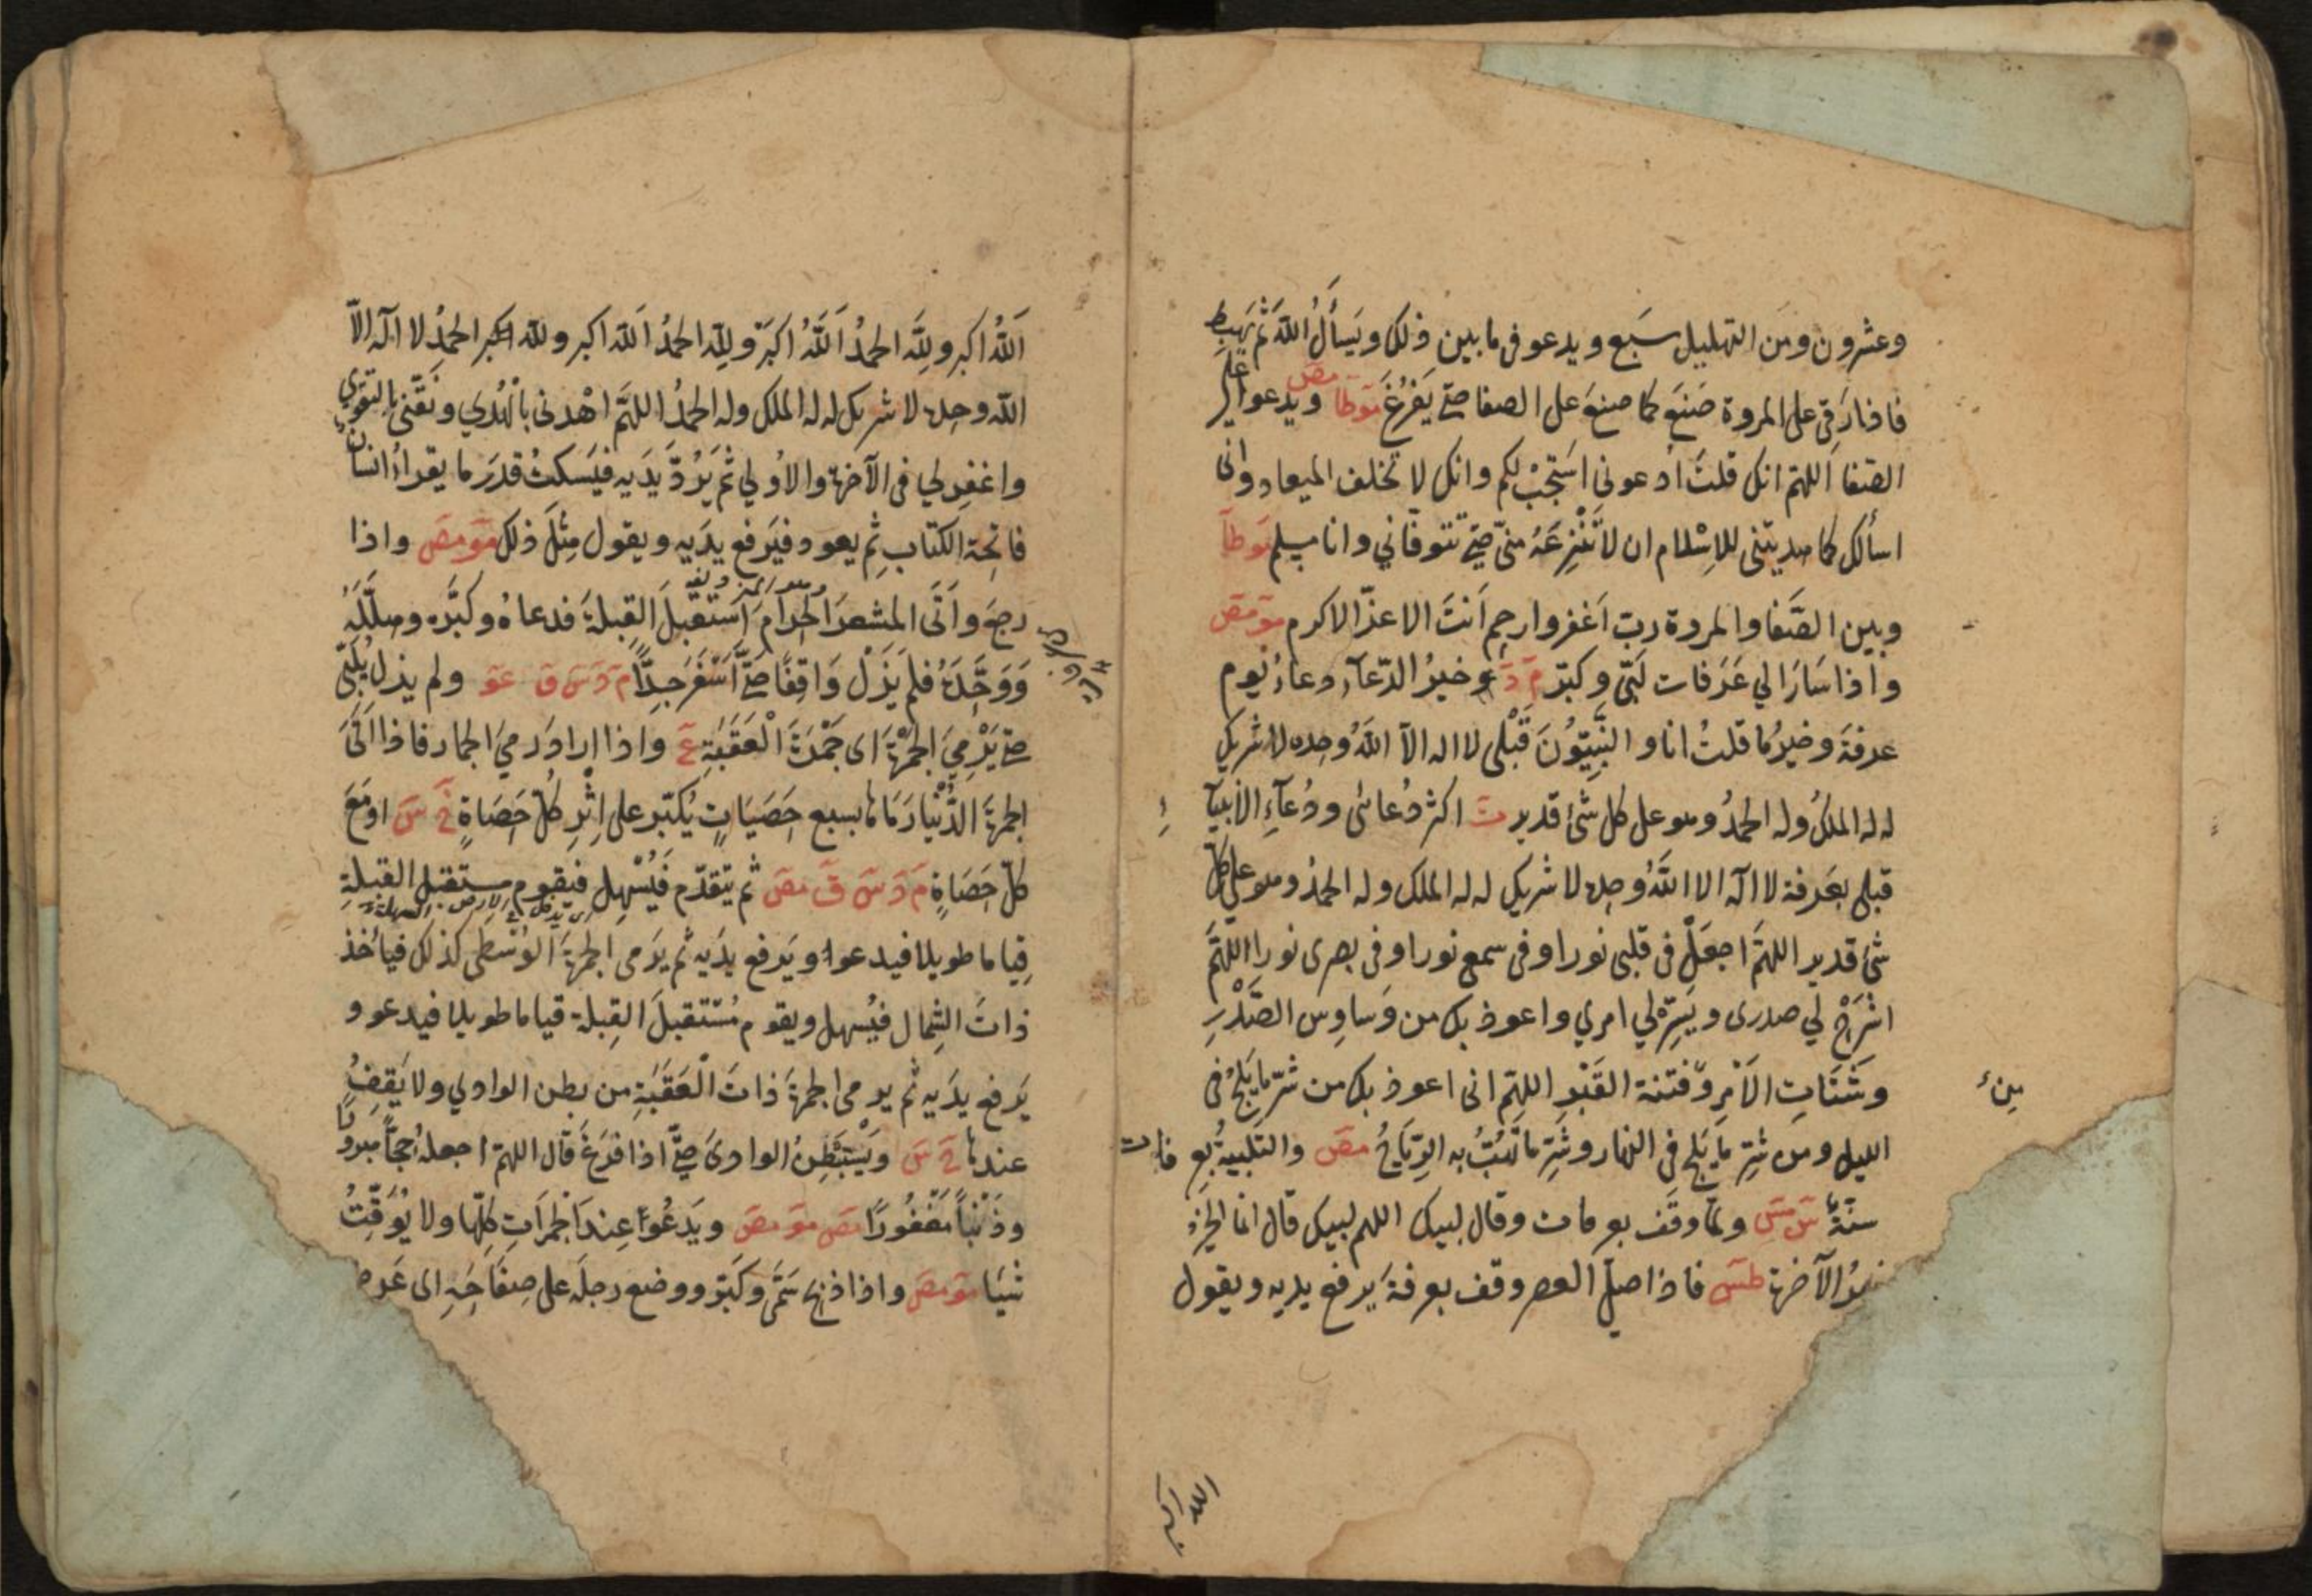 وعشرون ومن التهليل سَبع ويدعو فى ما بين ذلك ويَسأَلُ اللّهَ ثُمّ يَهبِط
فاذا رَقِى على المروة صَنعَ كما صنعَ على الصفا حتّى يَفرُغَ مَوطَا مصَ ويدعو على
الصفا اَللهمّ انك قلتَ ادعونى اَستجِبْ لكم وانك لا تخلف الميعاد وانى
اسألك كما هديتنى للاِسْلام ان لا تَنْزِعَهُ منّى حتّى تتوفّاني وانا مسلم مَوطَا
وبين الصَّفا والمروة رب اَغفر وارحم اَنتَ الاعزّ الاكرم مَوَ مصَ
واذا سَارَ الي عَرَفات لَبّى وكبّر مَ دَ وخيرُ الدّعآءِ دعاءُ يوم
عرفةَ وخيرُ ما قلتُ انا والنّبيّوُنَ قَبْلى لا اله الاّ اللّهُ وحده لا شريك
له له الملكُ وله الحمدُ وهو على كل شئ قدير تَ اكثر دُعائى ودُعآءِ الانبيآء
قبلى بعَرفة لا آله الا اللَّهُ وحده لا شريك له له الملك وله الحمدُ وهو على كلّ
شئ قدير اللهمَّ اجعَلْ فى قلبى نورا وفى سمعى نورا وفى بصرى نورا اللّهمَّ
اشْرَحْ لي صدرى ويَسِّرْ لي امري واعوذ بك من وَساوِس الصَّدْرِ
وشَتَاتِ الاَمْرِ وفتنة القَبْرِ اللهمّ انى اعوذ بك من شرّ ما يَلِجُ فى
مِنْ
الليل ومن شرّ ما يَلج فى النهار وشَرّ ما تَهُبُّ به الرِّيَاحُ مصَ والتلبيةُ بعرفات
سنّةٌ سَ مسَ ولمّا وقَف بعرفات وقال لبيك اللهم لبيك قال انما الخيرُ
خيرُ الآخرة طسَ فاذا صلّى العصر وقف بعرفةَ يرفع يديه ويقول
الله اكبر
اَللّهُ اكبر ولِلّهِ الحمدُ اَللَّهُ اكبَرُ ولِلّهِ الحمدُ اَللّه اكبر وللّه الحمدُ لا آله الاّ
اللّه وحده لا شريك له له الملك وله الحمدُ اللهمَّ اهْدنى بالْهُدي ونَقّنى بالتقوي
واغفِر لي فى الآخرة والاُولي ثم يَرُدّ يدَيه فيَسكتُ قدرَ ما يقراُ انسانٌ
فاتِحة الكتابِ ثم يعود فيَرفع يدَيه ويقول مِثلَ ذلك مَوَ مصَ واذا
رجعَ وأَتَى المشعرَ الحرامَ اِستَقبلَ القِبلةَ فدعاهُ وكبَّره وهلَّلَهُ
وَوَحَّدَهُ فلم يَزَلْ وَاقِفًا حتَّى اَسْفَرَ جِدًّا مَ دَ سَ قَ عَوَ ولم يزل يُلَبّى
حتّى يَرْمِيَ الجمْرَةَ اى جَمْرَةَ الْعَقَبَةِ عَ واذا اراد رَميَ الجمار فاذا اَتَى
الجمرةَ الدُّنْيا رَمَاهَا بسبع حَصَيَاتٍ يُكَبّر على اِثْرِ كُلّ حَصَاةٍ خَ سَ او مَعَ
كلّ حَصَاةٍ مَ دَ سَ قَ مصَ ثم يتقدّم فَيُسْهِل فيقوم مستقبل القبلةِ
قِياما طويلا فيدعوا ويَرفع يدَيه ثم يَرمى الجمرةَ الوُسْطى كذلك فيأخذ
ذاتَ الشِمال فيُسهل ويقوم مُسْتقبلَ القِبلة قياما طويلا فيدعو و
يَرفع يدَيه ثم يرمى الجمرةَ ذاتَ الْعَقَبَةِ من بطن الوادي ولا يَقِفُ
عندها خَ سَ ويَسْتَبْطِنُ الوادىَ حتّى اذا فَرَغَ قال اللهمّ اجعلهُ حجًّا مبرورًا
وذَنْبًا مَغْفُورًا مصَ مَوَ مصَ ويَدعُوا عِندَ الجمرَاتِ كلّها ولا يُوَقِّتُ
شيئا مَوَ مصَ واذا ذبح سَمَّى وكَبّر ووضع رجلَه على صِفَاحِهِ